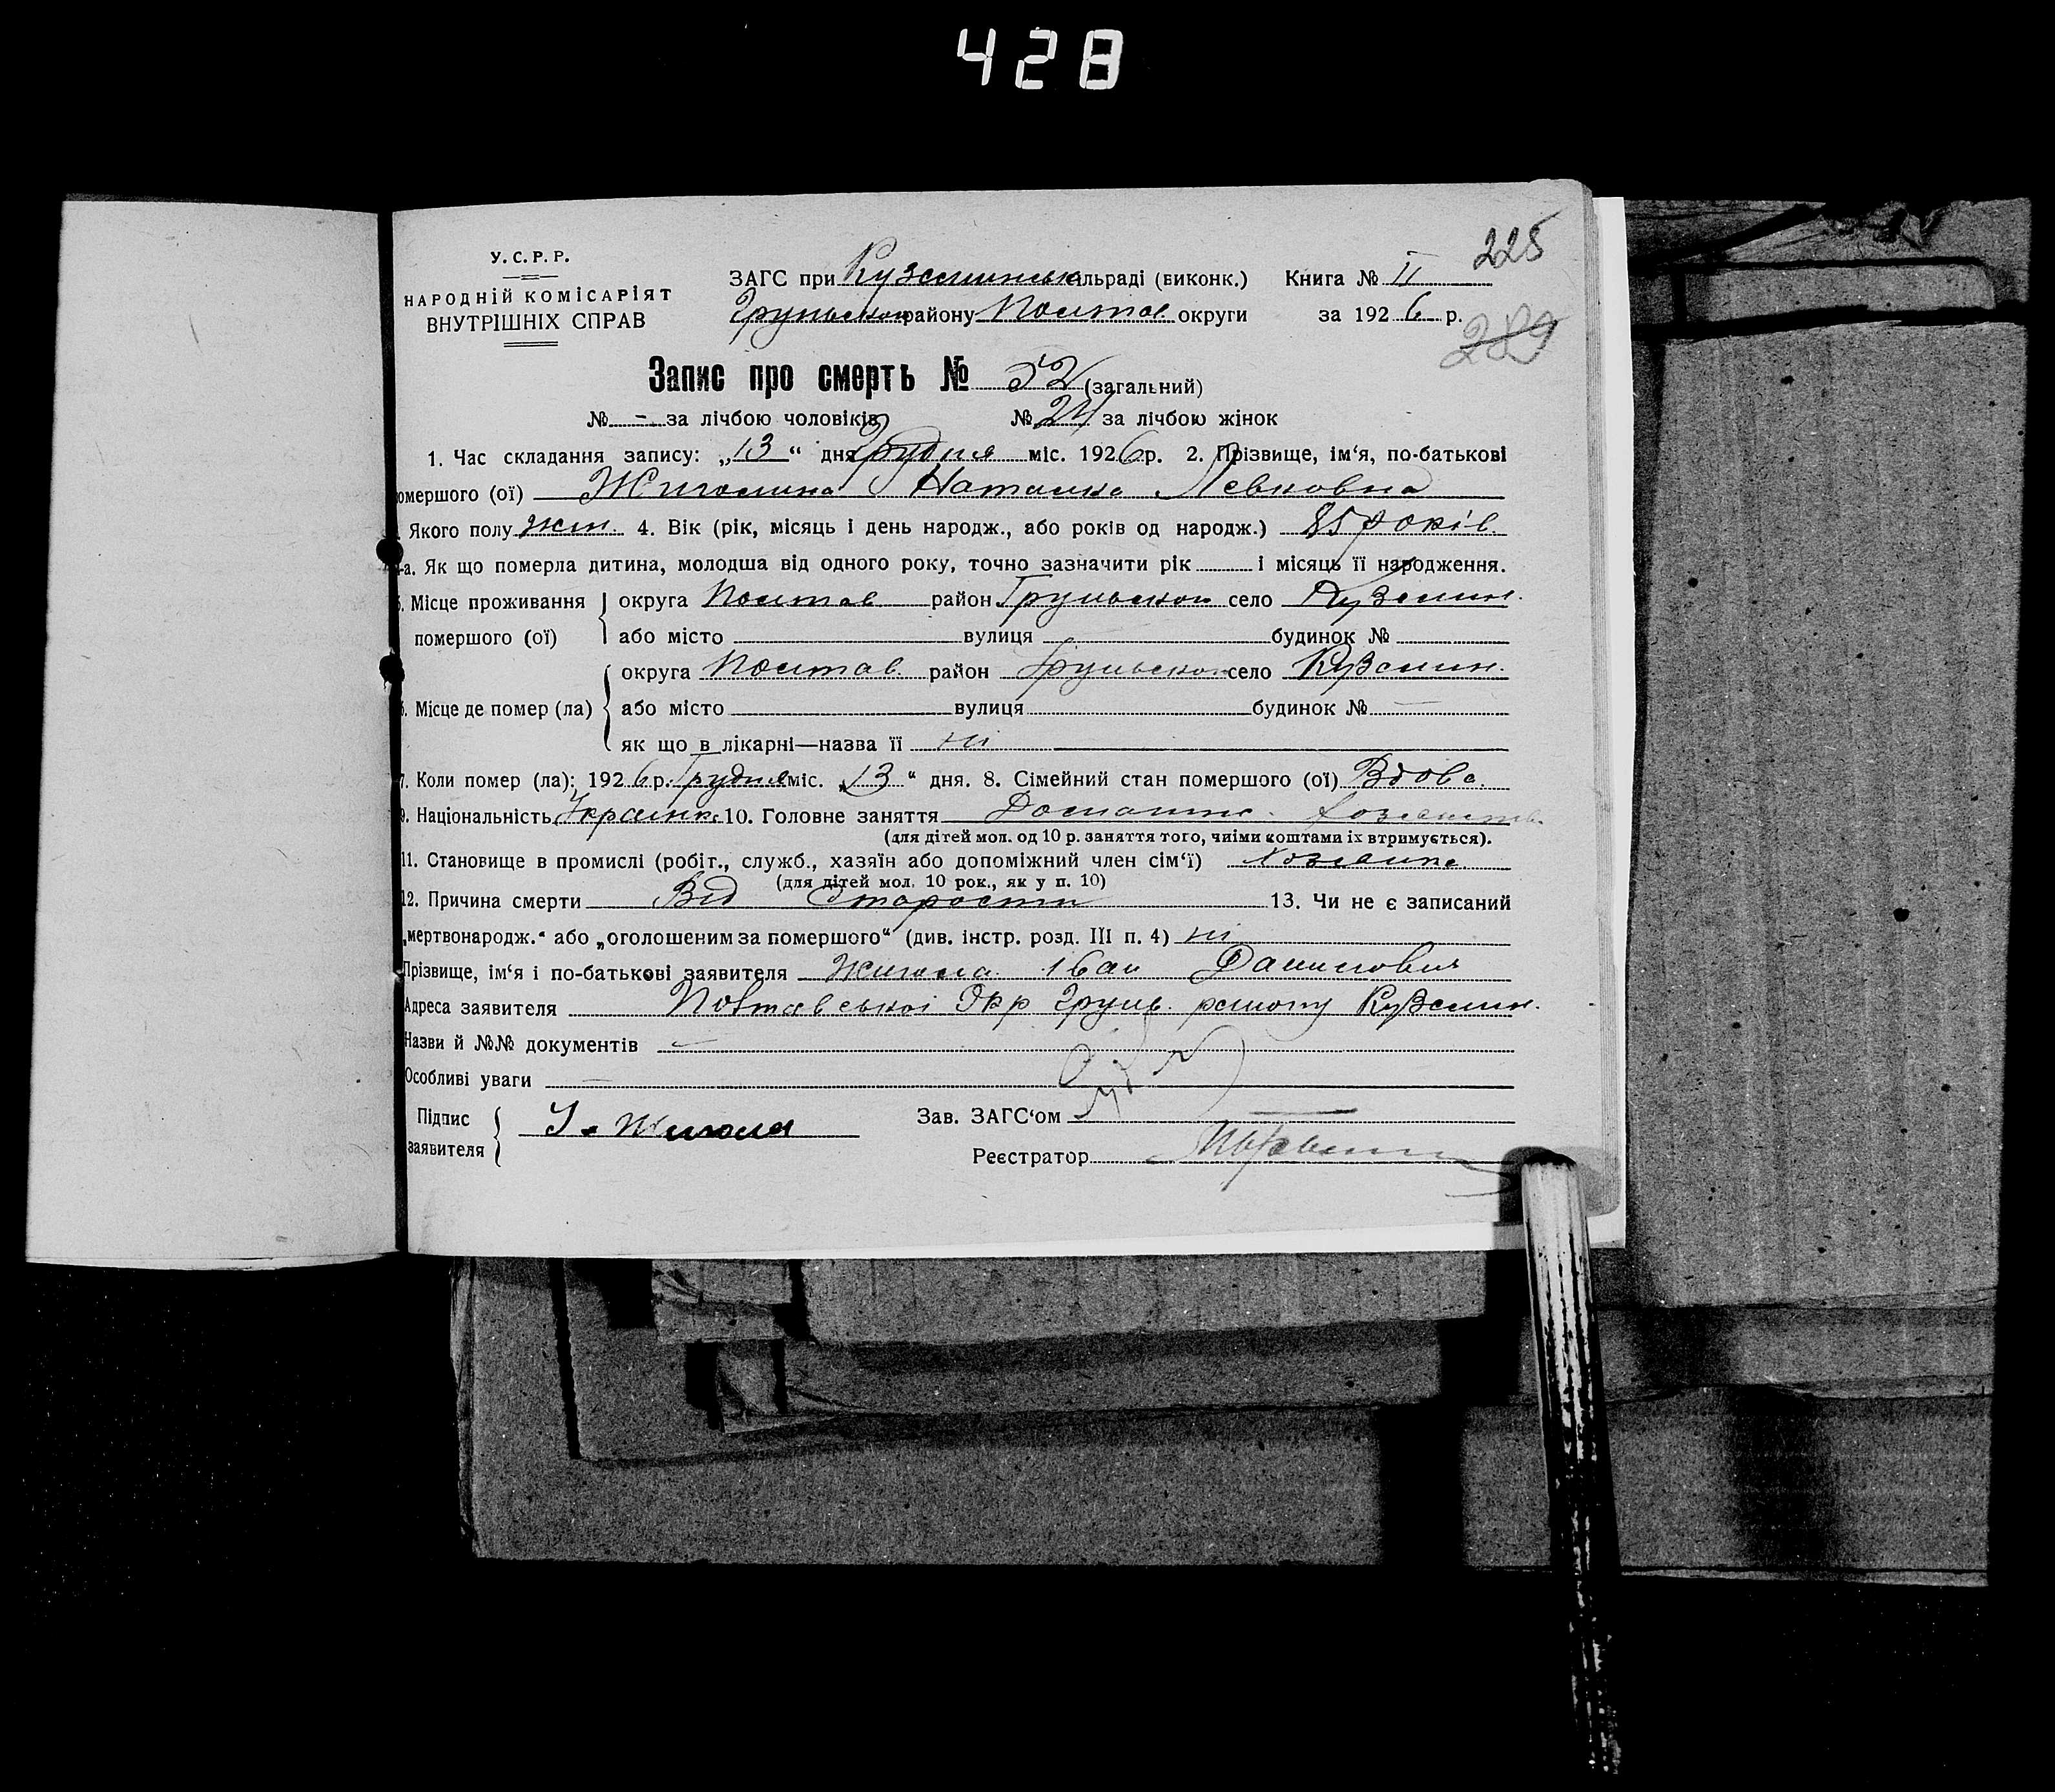 428
225
У.С.Р.Р.
НАРОДНІЙ КОМІСАРІЯТ
ВНУТРІШНІХ СПРАВ
ЗАГС при Куземинськ ільраді (виконк.) Книга № II
Грунськом району Полтав округи за 1926 р.
289
Запис про смерть № 52 (загальний)
№ - за лічбою чоловіків № 24 за лічбою жінок
1. Час складання запису: „13“ дня Грудня міс. 1926 р. 2. Прізвище, ім‘я, по-батькові
омершого (ої) Наталка Левковна
Якого полу жін. 4. Вік (рік, місяць і день народж., або років од народж.) 85 років.
-а. Як що померла дитина, молодша від одного року, точно зазначити рік і місяць її народження.
5. Місце проживання округа Полтав район Грунськом село Куземин.
померлого (ої) або місто вулиця будинок №
округа Полтав. район Грунськом село Куземин.
6. Місце де помер (ла) або місто вулиця будинок №
як що в лікарні—назва її ні
7. Коли помер (ла): 1926 р. Грудня міс. „13“ дня. 8. Сімейний стан померлого (ої) Вдова.
9. Національність Українка 10. Головне заняття Домашнє
(для дітей мол. од 10 р. заняття того, чиїми коштами їх втримується).
11. Становище в промислі (робіт., служб., хазяїн або допоміжний член сім‘ї) Хозяйка
(для дітей мол. 10 рок., як у п. 10)
12. Причина смерти Від Старости 13. Чи не є записаний
„мертвонародж.“ або „оголошеним за померлого“ (див. інстр. розд. III п. 4) ні
Прізвище, ім‘я і по-батькові заявителя Жигала Іван Данилович
Адреса заявителя Полтавської Окр Грунь. району Куземин.
Назви й №№ документів
Особливі уваги
Підпис
заявителя І. Жигала
Зав. ЗАГС‘ом
Реєстратор